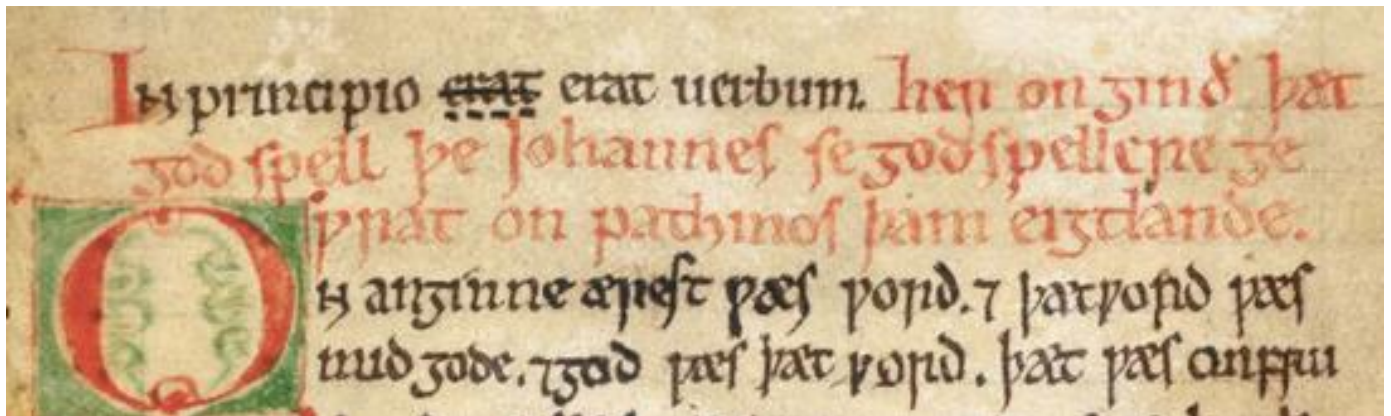 In principio erat erat uerbum. her on ginð þæt
god spell þe Iohannes se godspellere ge
ƿrat on pathmos þam eiglande.
ON anginne ærest ƿæs ƿord. ⁊ þæt ƿord ƿæs
mid gode. ⁊ god ƿæs þæt ƿord. þæt ƿæs